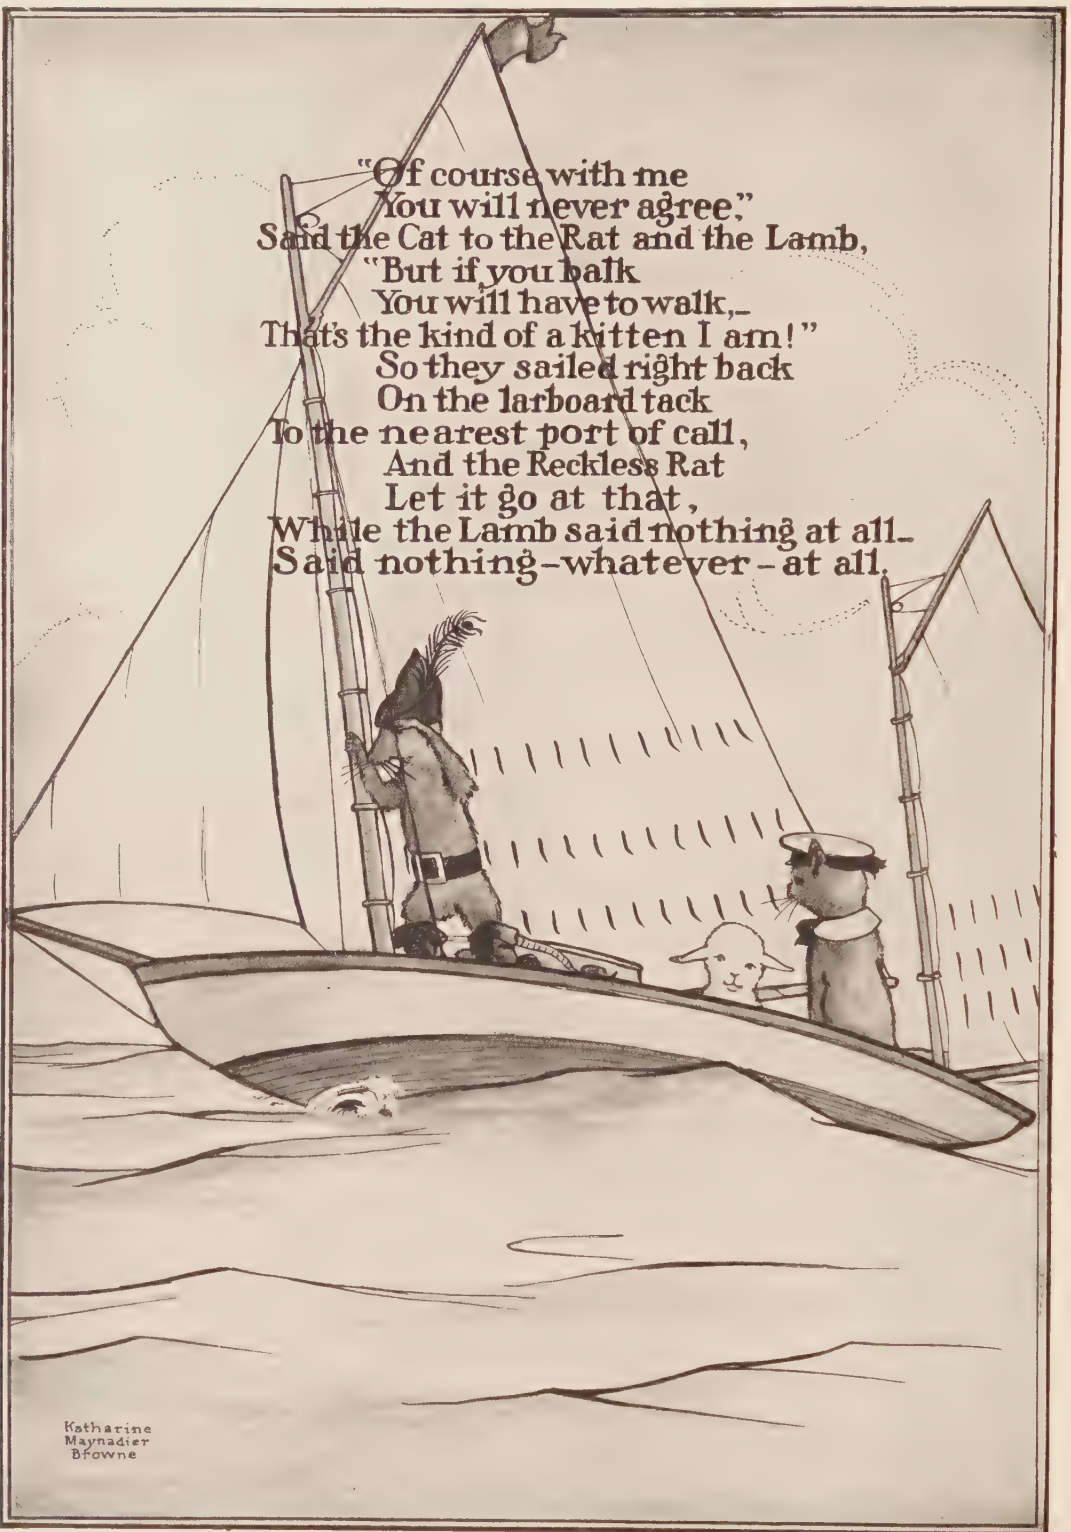 “Of course with me
You will never agree,”
Said the Cat to the Rat and the Lamb,
“But if you balk
You will have to walk,–
That's the kind of a kitten I am!”
So they sailed right back
On the larboard tack
To the nearest port of call,
And the Reckless Rat
Let it go at that,
While the Lamb said nothing at all–
Said nothing–whatever–at all.
Katharine
Maynadier
Browne